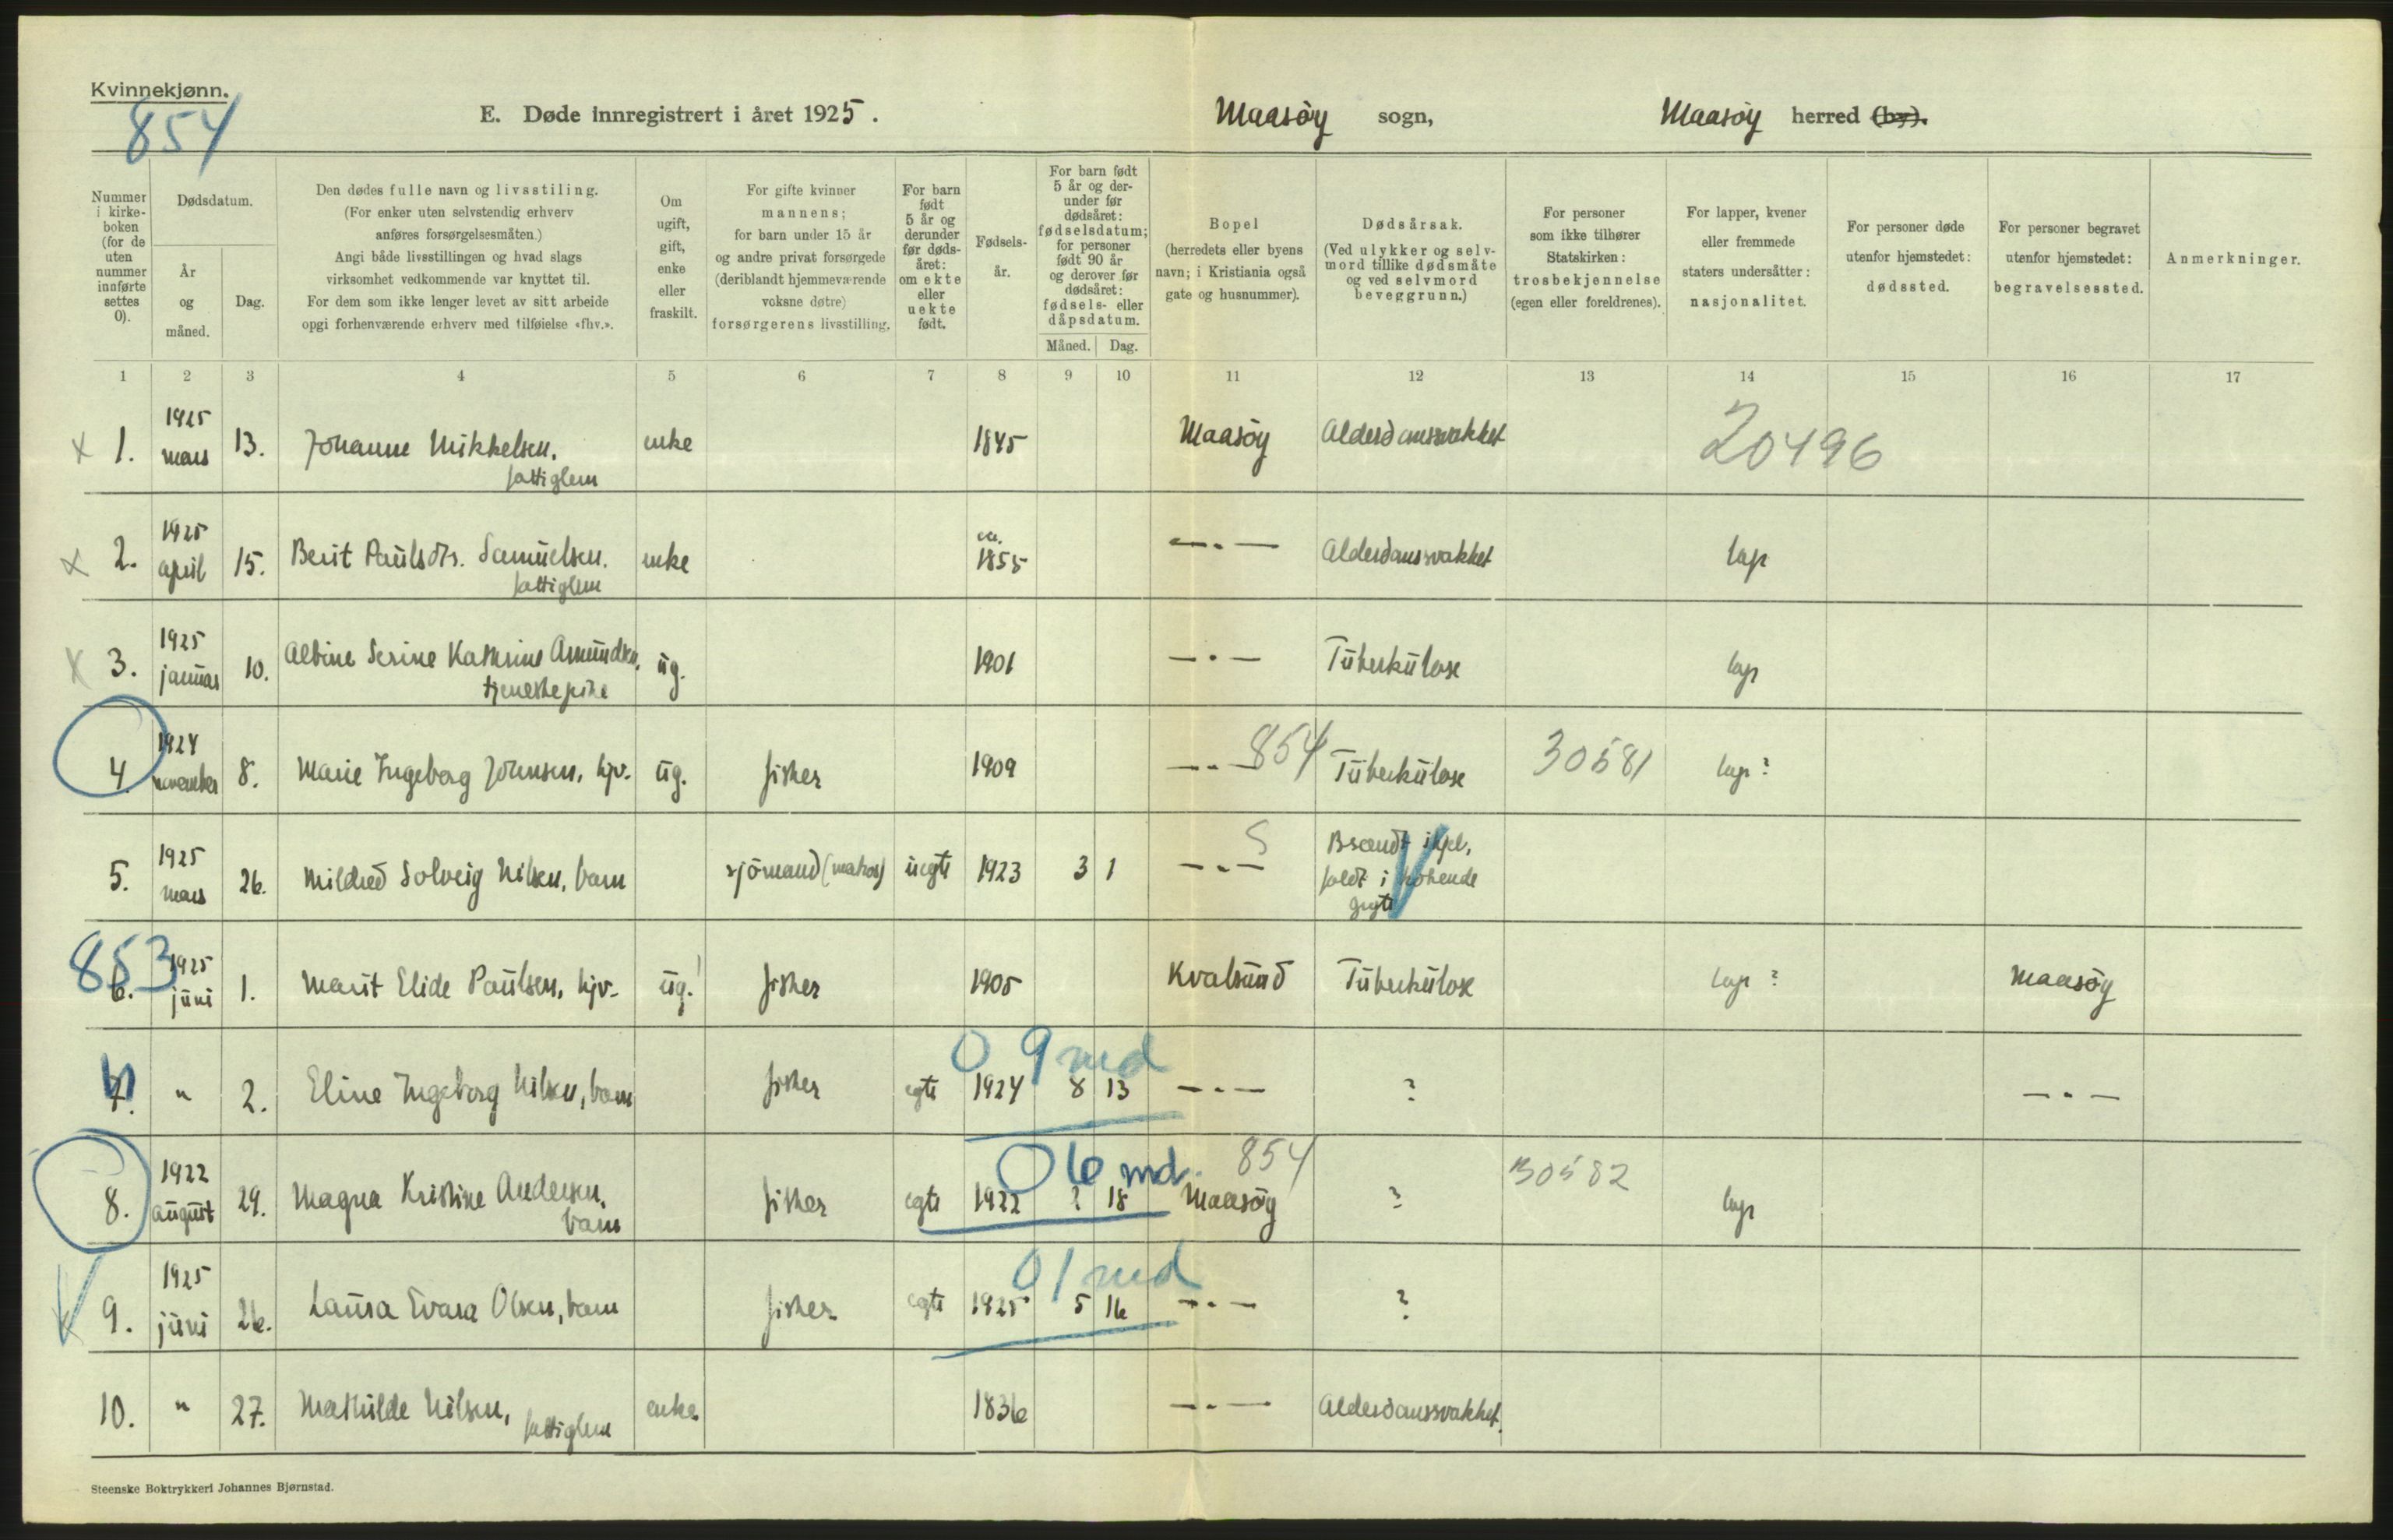 Kvinnekjønn.
854
E. Døde innregistrert i året 1925.
Maasöy sogn,
Maasöy herred (by).
Nummer i kirke-boken (for de uten nummer innførte settes 0).
Dødsdatum.
År og måned.
Dag.
Den dødes fulle navn og livsstiling.
(For enker uten selvstendig erhverv
anføres forsørgelsesmåten.)
Angi både livsstillingen og hvad slags
virksomhet vedkommende var knyttet til.
For dem som ikke lenger levet av sitt arbeide
opgi forhenværende erhverv med tilføielse «fhv.».
Om ugift, gift, enke eller fraskilt.
For gifte kvinner
mannens;
for barn under 15 år
og andre privat forsørgede
(deriblandt hjemmeværende
voksne døtre)
forsørgerens livsstilling.
For barn født 5 år og derunder før dødsåret: om ekte eller uekte født.
Fødsels-år.
For barn født
5 år og der-
under før
dødsåret:
fødselsdatum;
for personer
født 90 år
og derover før
dødsåret:
fødsels- eller
dåpsdatum.
Måned. Dag.
Bopel
(herredets eller byens
navn; i Kristiania også
gate og husnummer).
Dødsårsak.
(Ved ulykker og selv-
mord tillike dødsmåte
og ved selvmord
beveggrunn.)
For personer
som ikke tilhører
Statskirken:
trosbekjennelse
(egen eller foreldrenes).
For lapper, kvener
eller fremmede
staters undersåtter:
nasjonalitet.
For personer døde
utenfor hjemstedet:
dødssted.
For personer begravet
utenfor hjemstedet:
begravelsessted.
Anmerkninger.
1 2 3 4 5 6 7 8 9 10 11 12 13 14 15 16 17
x 1. 1925 mars 13. Johanne Mikkelsen, fattiglem enke 1845 Maasöy Alderdomssvakhet 20496
x 2. 1925 april 15. Berit Paulsdtr. Samuelsen. fattiglem enke ca. 1855 — " — Alderdomssvakhet lap
x 3. 1925 januar 10. Albine Serine Kathrine Amundsen, tjenestepike ug. 1901 — " — Tuberkulose lap
4. 1924 november 8. Marie Ingeborg Johnsen, hjv. ug. fisker 1909 — " — 854 Tuberkulose 30581 lap ?
5. 1925 mars 26. Mildred Solveig Nilsen, barn sjömand (matros) uegte 1923 3 1 — " — S Brændt ihjel, faldt i kokende gryte
853
6. 1925 juni 1. Marit Elide Paulsen, hjv. ug. fisker 1905 Kvalsund Tuberkulose lap ? Maasöy
0 9 md
7. " 2. Eline Ingeborg Nilsen, barn fisker egte 1924 8 13 — " — ? — " —
0 6 md. 854
8. 1922 august 29. Magna Kristine Andersen, barn fisker egte 1922 ? 18 Maasöy ? 30582 lap
0 1 md
9. 1925 juni 26. Laura Evara Olsen, barn fisker egte 1925 5 16 — " — ?
10. " 27. Mathilde Nilsen, fattiglem enke 1836 — " — Alderdomssvakhet.
Steenske Boktrykkeri Johannes Bjørnstad.